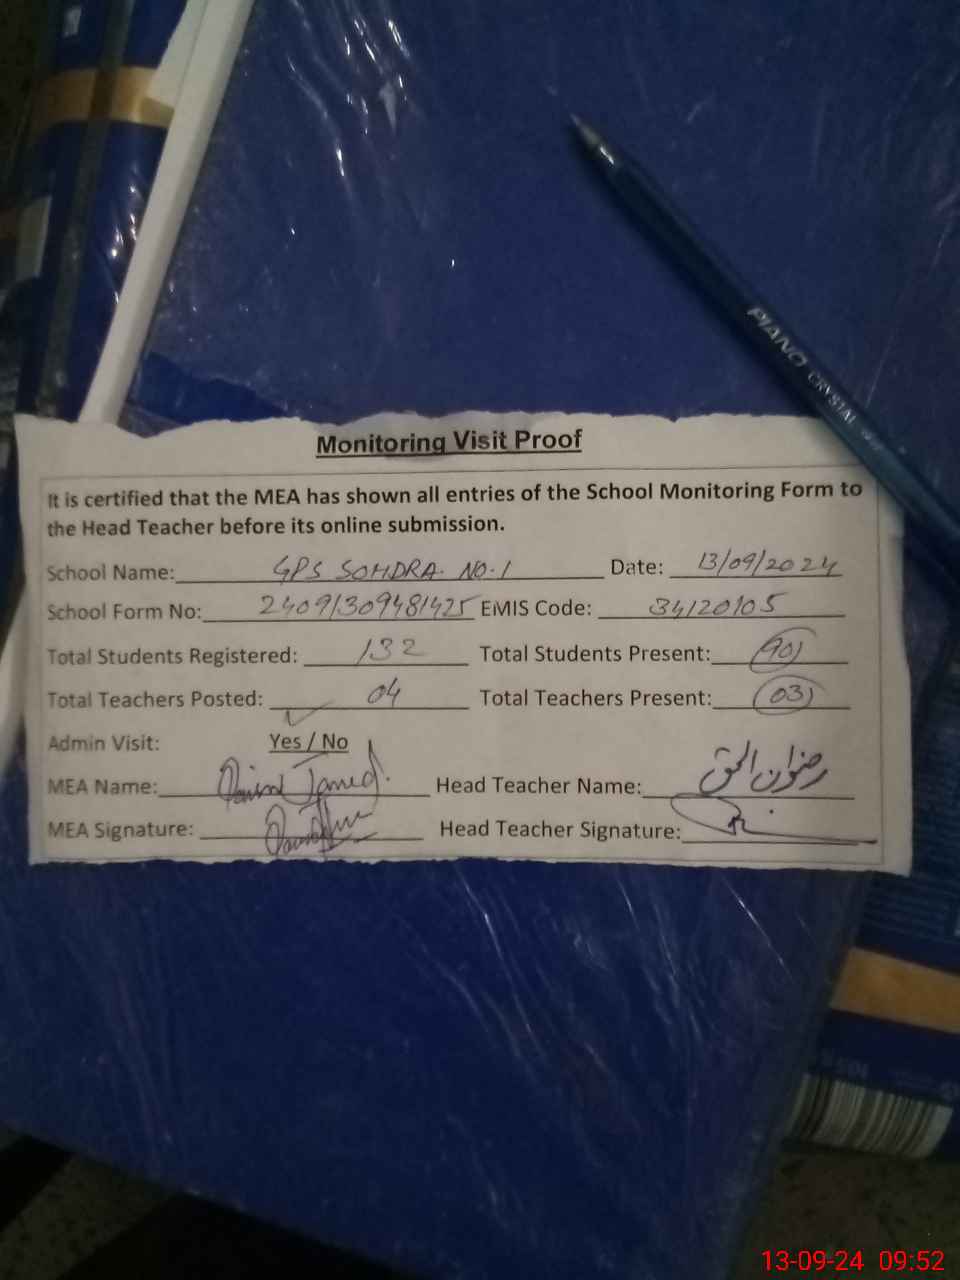 PIANO CRYSTAL
Monitoring Visit Proof
It is certified that the MEA has shown all entries of the School Monitoring Form to
the Head Teacher before its online submission.
School Name: GPS SOHDRA NO.1 Date: 13/09/2024
School Form No: 24091309481425 EMIS Code: 34120105
Total Students Registered: 132 Total Students Present: 90
Total Teachers Posted: 04 Total Teachers Present: 03
Admin Visit: Yes / No
MEA Name: Head Teacher Name: رضوان الحق
MEA Signature: Head Teacher Signature:
13-09-24 09:52